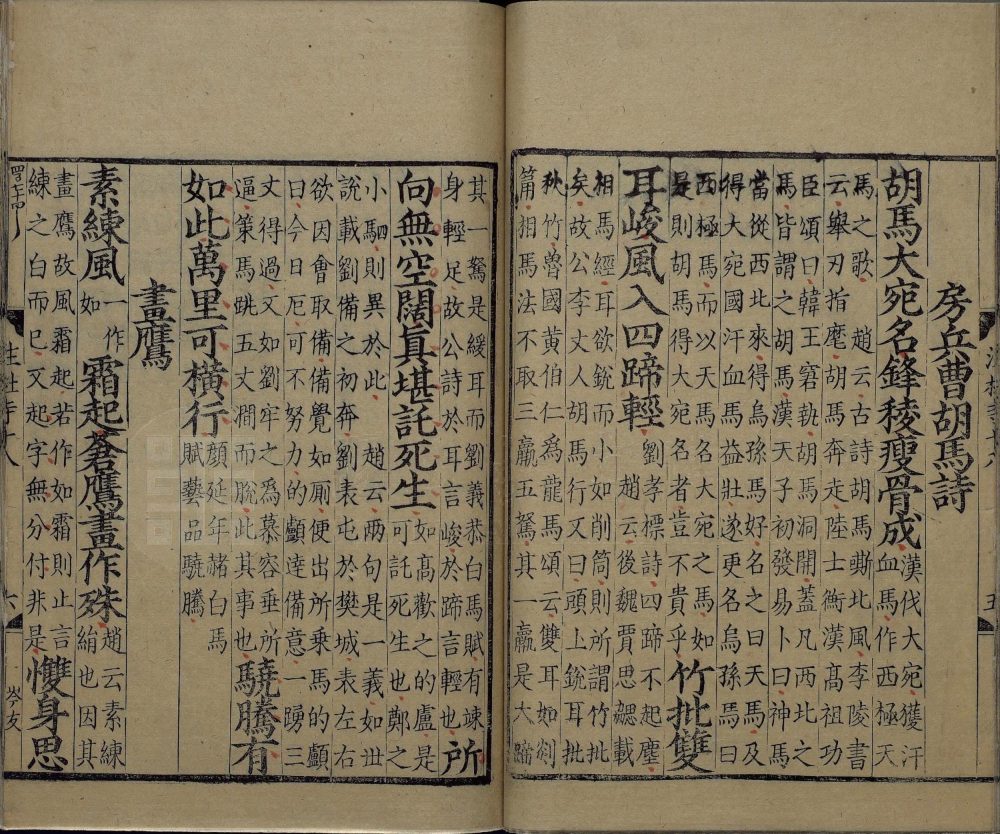 房兵曹胡馬詩
胡馬大宛名鋒稜瘦骨成漢伐大宛獲汗
血馬作西極天
馬之歌 趙云古詩胡馬嘶北風李陵書
云舉刃指麾胡馬奔走陸士衡漢高祖功
臣頌曰韓王窘執胡馬洞開蓋凡西北之
馬皆謂之胡馬漢天子初發易卜曰神馬
當從西北來得烏孫馬好名之曰天馬及
得大宛國汗血馬益壯遂更名烏孫馬曰
西極馬而以天馬名大宛之馬如
是則胡馬得大宛名者豈不貴乎竹批雙
耳峻風入四蹄輕劉孝標詩四蹄不起塵
趙云後魏賈思勰載
相馬經耳欲銳而小如削筒則所謂竹批
矣故公李丈人胡馬行又曰頭上銳耳批
秋竹魯國黃伯仁爲龍馬頌云雙耳如剡
筩相馬法不取三羸五駑其一羸是大蹄
其一駑是緩耳而劉義恭白馬賦有竦
身輕足故公詩於耳言峻於蹄言輕也所
向無空闊眞堪託死生如高歡之的盧是
可託死生也鄭之
小駟則異於此 趙云两句是一義如世
說載劉備之初奔劉表屯於樊城表左右
欲因會取備備覺如厠便出所乗馬的顱
日今日厄可不努力的顱達備意一踴三
丈得過又如劉牢之爲慕容垂所
逼策馬跳五丈澗而脫此其事也驍騰有
如此萬里可橫行顏延年赭白馬
賦藝品驍騰
畫鷹
素練風一作如霜起蒼鷹畫作殊趙云素練
絹也因其
畫鷹故風霜起若作如霜則止言
練之白而巳又起字無分付非是㩳身思
六
岑友